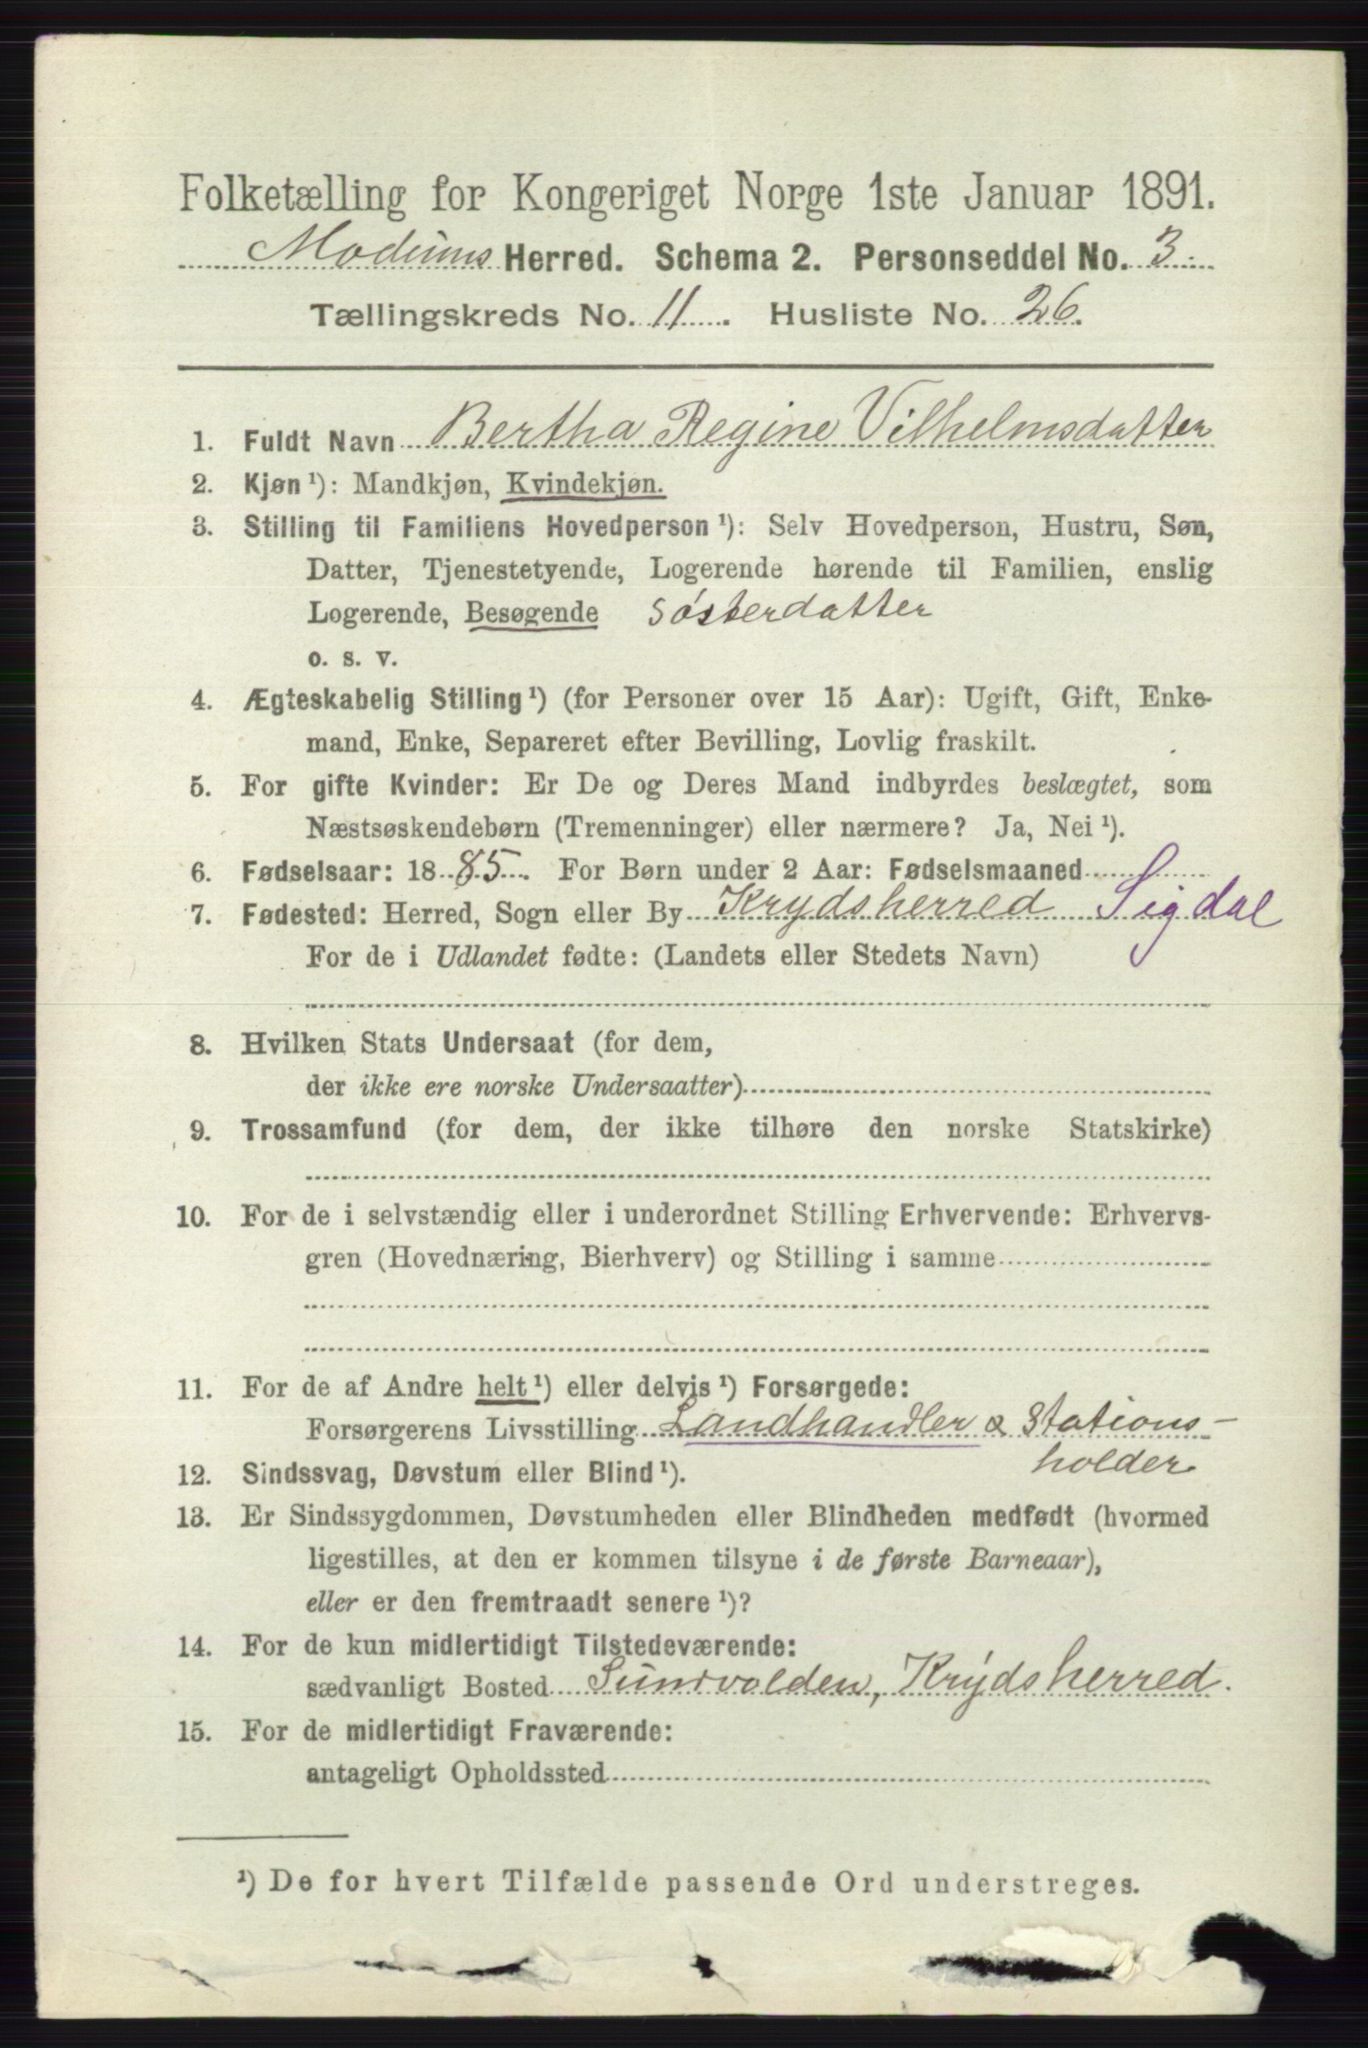 Folketælling for Kongeriget Norge 1ste Januar 1891.
Modums Herred. Schema 2. Personseddel No. 3
Tællingskreds No. 11. Husliste No. 26.
1. Fuldt Navn Bertha Regine Vilhelmsdatter
2. Kjøn ¹): Mandkjøn, Kvindekjøn.
3. Stilling til Familiens Hovedperson ¹): Selv Hovedperson, Hustru, Søn,
Datter, Tjenestetyende, Logerende hørende til Familien, enslig
Logerende, Besøgende Søsterdatter
o. s. v.
4. Ægteskabelig Stilling ¹) (for Personer over 15 Aar): Ugift, Gift, Enke-
mand, Enke, Separeret efter Bevilling, Lovlig fraskilt.
5. For gifte Kvinder: Er De og Deres Mand indbyrdes beslægtet, som
Næstsøskendebørn (Tremenninger) eller nærmere? Ja, Nei ¹).
6. Fødselsaar: 1885. For Børn under 2 Aar: Fødselsmaaned
7. Fødested: Herred, Sogn eller By Krydsherred Sigdal
For de i Udlandet fødte: (Landets eller Stedets Navn)
8. Hvilken Stats Undersaat (for dem,
der ikke ere norske Undersaatter)
9. Trossamfund (for dem, der ikke tilhøre den norske Statskirke)
10. For de i selvstændig eller i underordnet Stilling Erhvervende: Erhvervs-
gren (Hovednæring, Bierhverv) og Stilling i samme
11. For de af Andre helt ¹) eller delvis ¹) Forsørgede:
Forsørgerens Livsstilling Landhandler & Stations-
holder
12. Sindssvag, Døvstum eller Blind ¹).
13. Er Sindssygdommen, Døvstumheden eller Blindheden medfødt (hvormed
ligestilles, at den er kommen tilsyne i de første Barneaar),
eller er den fremtraadt senere ¹)?
14. For de kun midlertidigt Tilstedeværende:
sædvanligt Bosted Sundvolden, Krydsherred.
15. For de midlertidigt Fraværende:
antageligt Opholdssted
¹) De for hvert Tilfælde passende Ord understreges.